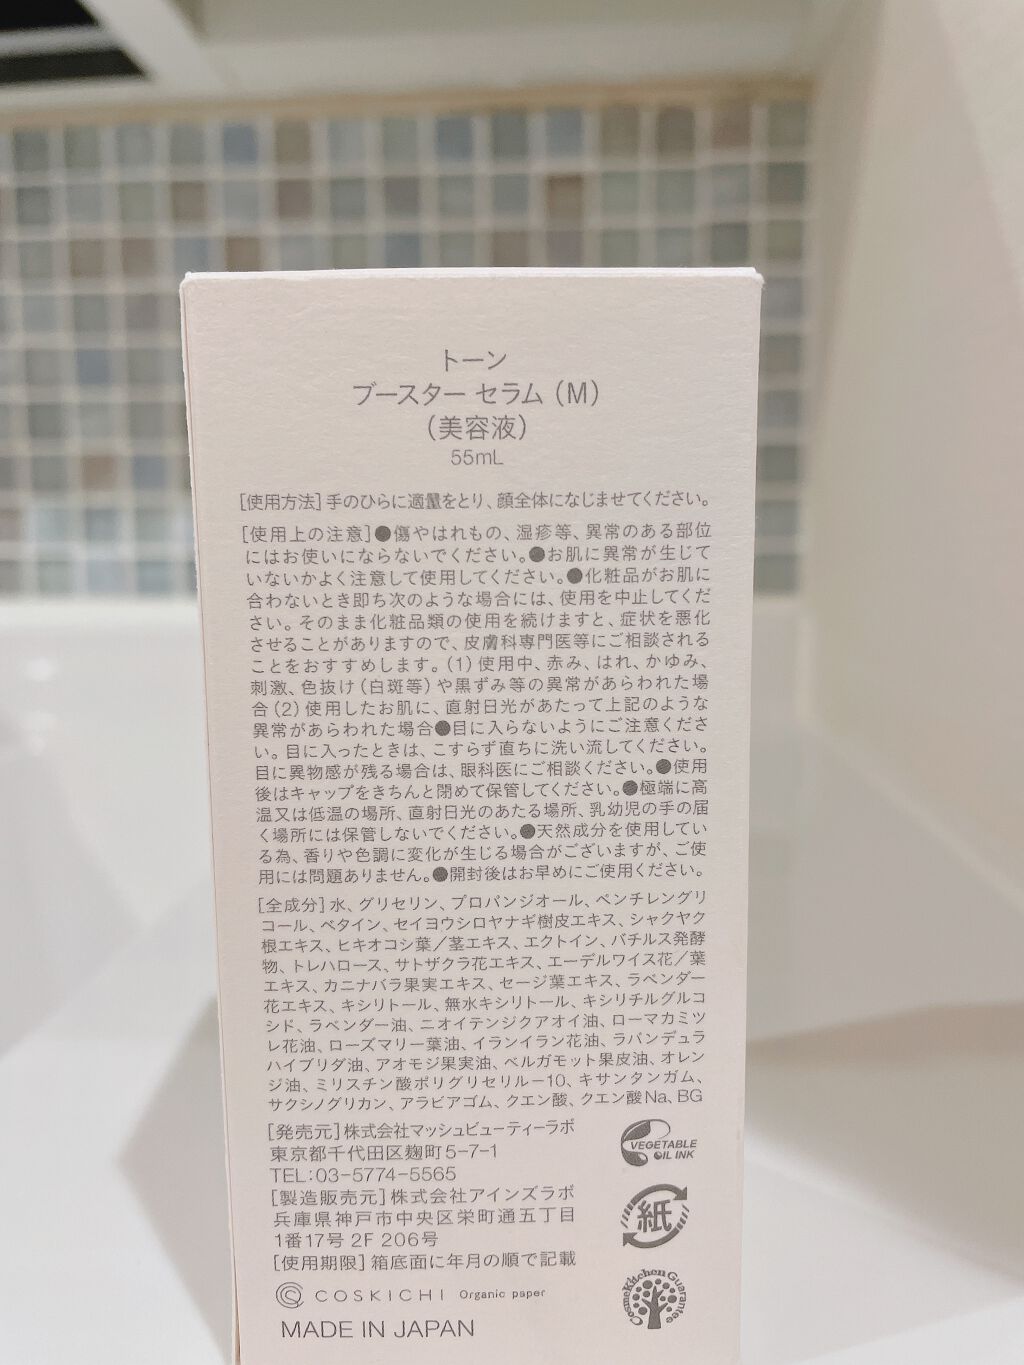 トーン
ブースター セラム（M）
（美容液）
55mL
［使用方法］手のひらに適量をとり、顔全体になじませてください。
［使用上の注意］●傷やはれもの、湿疹等、異常のある部位
にはお使いにならないでください。●お肌に異常が生じて
いないかよく注意して使用してください。●化粧品がお肌に
合わないとき即ち次のような場合には、使用を中止してくだ
さい。そのまま化粧品類の使用を続けますと、症状を悪化
させることがありますので、皮膚科専門医等にご相談される
ことをおすすめします。（1）使用中、赤み、はれ、かゆみ、
刺激、色抜け（白斑等）や黒ずみ等の異常があらわれた場
合（2）使用したお肌に、直射日光があたって上記のような
異常があらわれた場合●目に入らないようにご注意くださ
い。目に入ったときは、こすらず直ちに洗い流してください。
目に異物感が残る場合は、眼科医にご相談ください。●使用
後はキャップをきちんと閉めて保管してください。●極端に高
温又は低温の場所、直射日光のあたる場所、乳幼児の手の届
く場所には保管しないでください。●天然成分を使用してい
る為、香りや色調に変化が生じる場合がございますが、ご使
用には問題ありません。●開封後はお早めにご使用ください。
［全成分］水、グリセリン、プロパンジオール、ペンチレングリ
コール、ベタイン、セイヨウシロヤナギ樹皮エキス、シャクヤク
根エキス、ヒキオコシ葉／茎エキス、エクトイン、バチルス発酵
物、トレハロース、サトザクラ花エキス、エーデルワイス花／葉
エキス、カニナバラ果実エキス、セージ葉エキス、ラベンダー
花エキス、キシリトール、無水キシリトール、キシリチルグルコ
シド、ラベンダー油、ニオイテンジクアオイ油、ローマカミツ
レ花油、ローズマリー葉油、イランイラン花油、ラバンデュラ
ハイブリダ油、アオモジ果実油、ベルガモット果皮油、オレン
ジ油、ミリスチン酸ポリグリセリル－10、キサンタンガム、
サクシノグリカン、アラビアゴム、クエン酸、クエン酸Na、BG
［発売元］株式会社マッシュビューティーラボ
東京都千代田区麹町5-7-1
TEL:03-5774-5565
［製造販売元］株式会社アインズラボ
兵庫県神戸市中央区栄町通五丁目
1番17号 2F 206号
［使用期限］箱底面に年月の順で記載
COSKICHI Organic paper
MADE IN JAPAN
VEGETABLE
OIL INK
紙
CosmeKitchen Guarantee